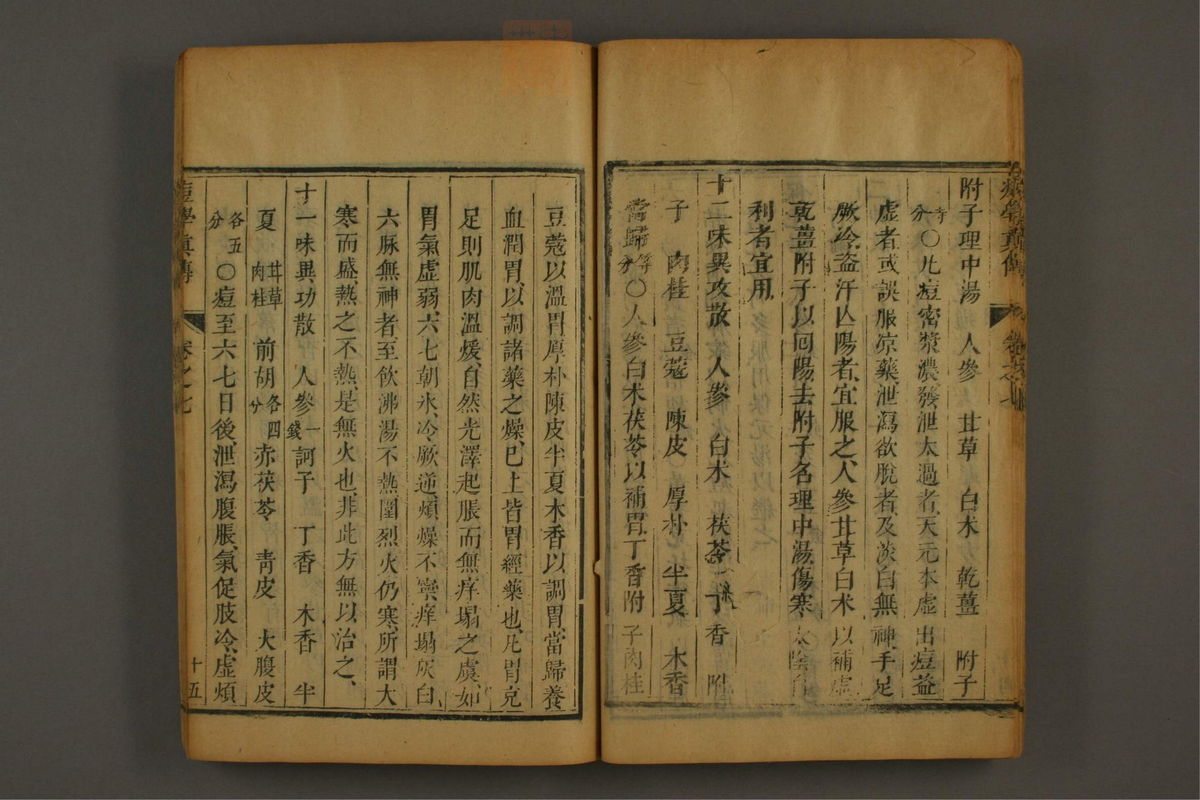 附子理中湯 人參 甘草 白朮 乾薑 附子
等分〇凡痘密漿濃發泄太過者天元本虛出痘益
虛者或誤服凉藥泄瀉欲脫者及淡白無神手足
厥冷盜汗亾陽者宜服之人參甘草白朮以補虛
乾薑附子以囘陽去附子名理中湯傷寒太陰自
利者宜用
十二味異攻散 人參 白朮 茯苓 丁香 附
子 肉桂 豆蔻 陳皮 厚朴 半夏 木香
當歸等分〇人參白朮茯苓以補胃丁香附子肉桂
豆蔻以溫胃厚朴陳皮半夏木香以調胃當歸養
血潤胃以調諸藥之燥已上皆胃經藥也凡胃克
足則肌肉溫煖自然光澤起脹而無痒塌之虞如
胃氣虛弱六七朝氷冷厥逆煩燥不寧痒塌灰白
六脉無神者至飲沸湯不熱圍烈火仍寒所謂大
寒而盛熱之不熱是無火也非此方無以治之
十一味異功散 人參一錢 訶子 丁香 木香 半
夏 甘草 肉桂 前胡各四分 赤茯苓 靑皮 大腹皮
各五分 〇痘至六七日後泄瀉腹脹氣促肢冷虛煩
痘學眞傳 卷之七 十五